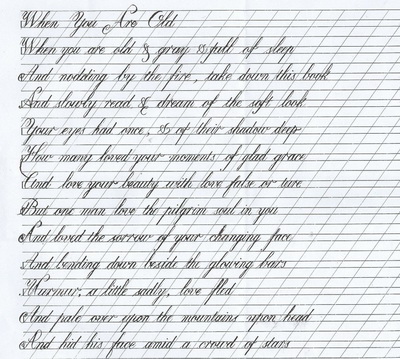 When You Are Old
When you are old & gray & full of sleep
And nodding by the fire, take down this book
And slowly read & dream of the soft look
Your eyes had once, & of their shadow deep
How many loved your moments of glad grace
And love your beauty with love false or true
But one man love the pilgrim soul in you
And loved the sorrow of your changing face
And bending down beside the glowing bars
Murmur, a little sadly, love fled
And pale over upon the mountains upon head
And hid his face amid a crowd of stars